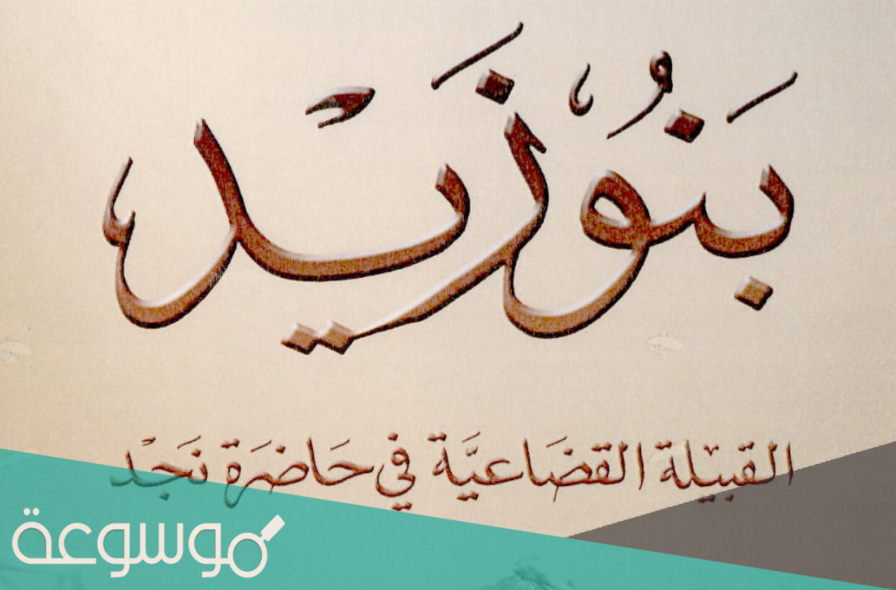 بَنُو زَيْد
القبيلة القضَاعيَّة في حَاضرَة نَجْد
موسوعة